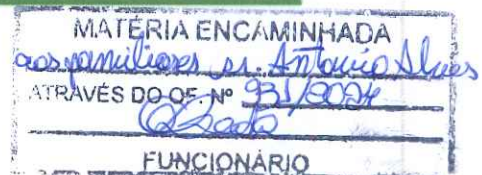 MATÉRIA ENCAMINHADA
aos familiares sr. Antonio Alves
ATRAVÉS DO OF. Nº 931/2024
FUNCIONÁRIO